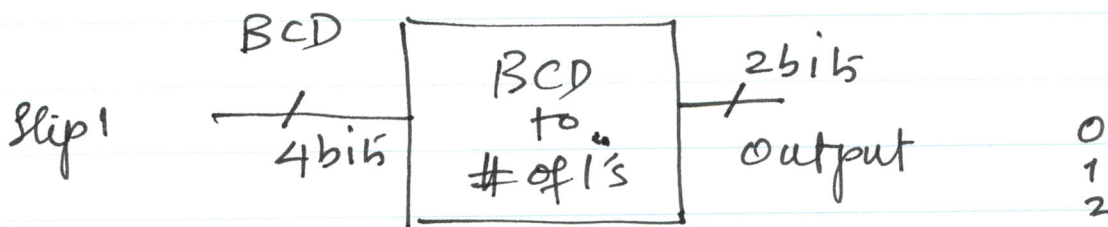 BCD
Step 1
4 bits
BCD
to
# of 1's
2 bits
Output
0
1
2